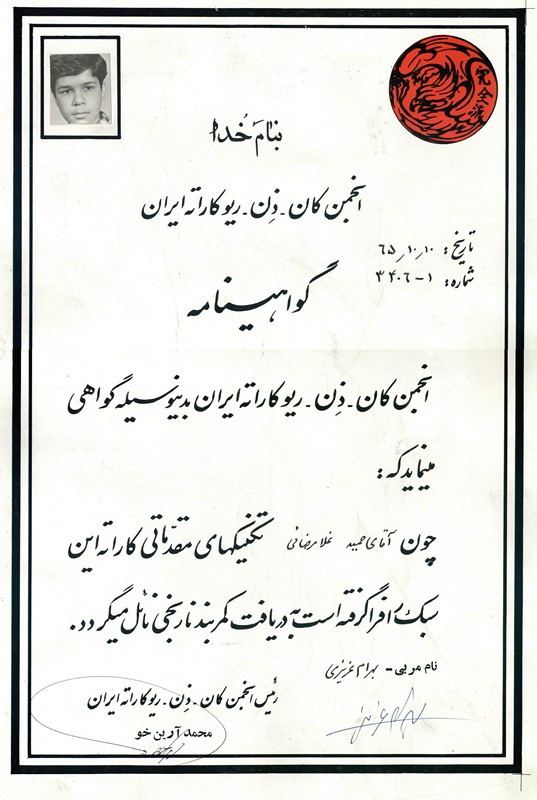 بنام خدا
انجمن کان - ذِن - ریو کاراته ایران
تاریخ : ۶۵٫۱۰٫۱۰
شماره : ۱ - ۳۴۰۶
گواهینامه
انجمن کان - ذِن - ریو کاراته ایران بدینوسیله گواهی
مینماید که :
چون آقای حمید غلامرضائی تکنیکهای مقدّماتی کاراته این
سبک را فرا گرفته است به دریافت کمربند نارنجی نائل میگردد .
نام مربی - بهرام عزیزی
رئیس انجمن کان - ذِن - ریو کاراته ایران
محمد آرین خو